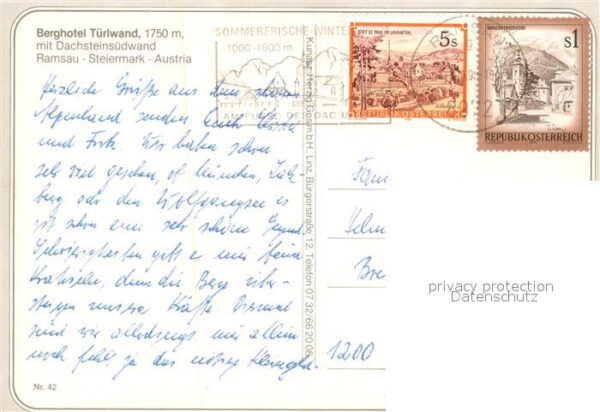 Berghotel Türlwand, 1750 m,
mit Dachsteinsüdwand
Ramsau - Steiermark - Austria
SOMMERFRISCHE-WINTER
1000-1800 m
AM FUSSE DES DACH
STIFT ST. PAUL IM LAVANTTAL
5s
REPUBLIK ÖSTERREICH
s1
REPUBLIK ÖSTERREICH
Herzliche Grüße aus dem schönen
Alpenland senden Euch
und Fritz. Wir haben schon
sehr viel gesehen, ob München, Salz-
burg oder den Wolfgangsee es
ist schon eine sehr schöne Gegend.
Schwierigkeiten gibt es nur beim
Kraxeln, denn die Berge über-
steigen unsere Kräfte.
sind wir allerdings nur allein
noch fehlt ja das nötige Kleingeld.
Kunstverlag Herzog Gesmbh. H. Linz, Bürgerstraße 12, Telefon 07 32/66 20 06
Fam
Bre
1200
privacy protection
Datenschutz
Nr. 42